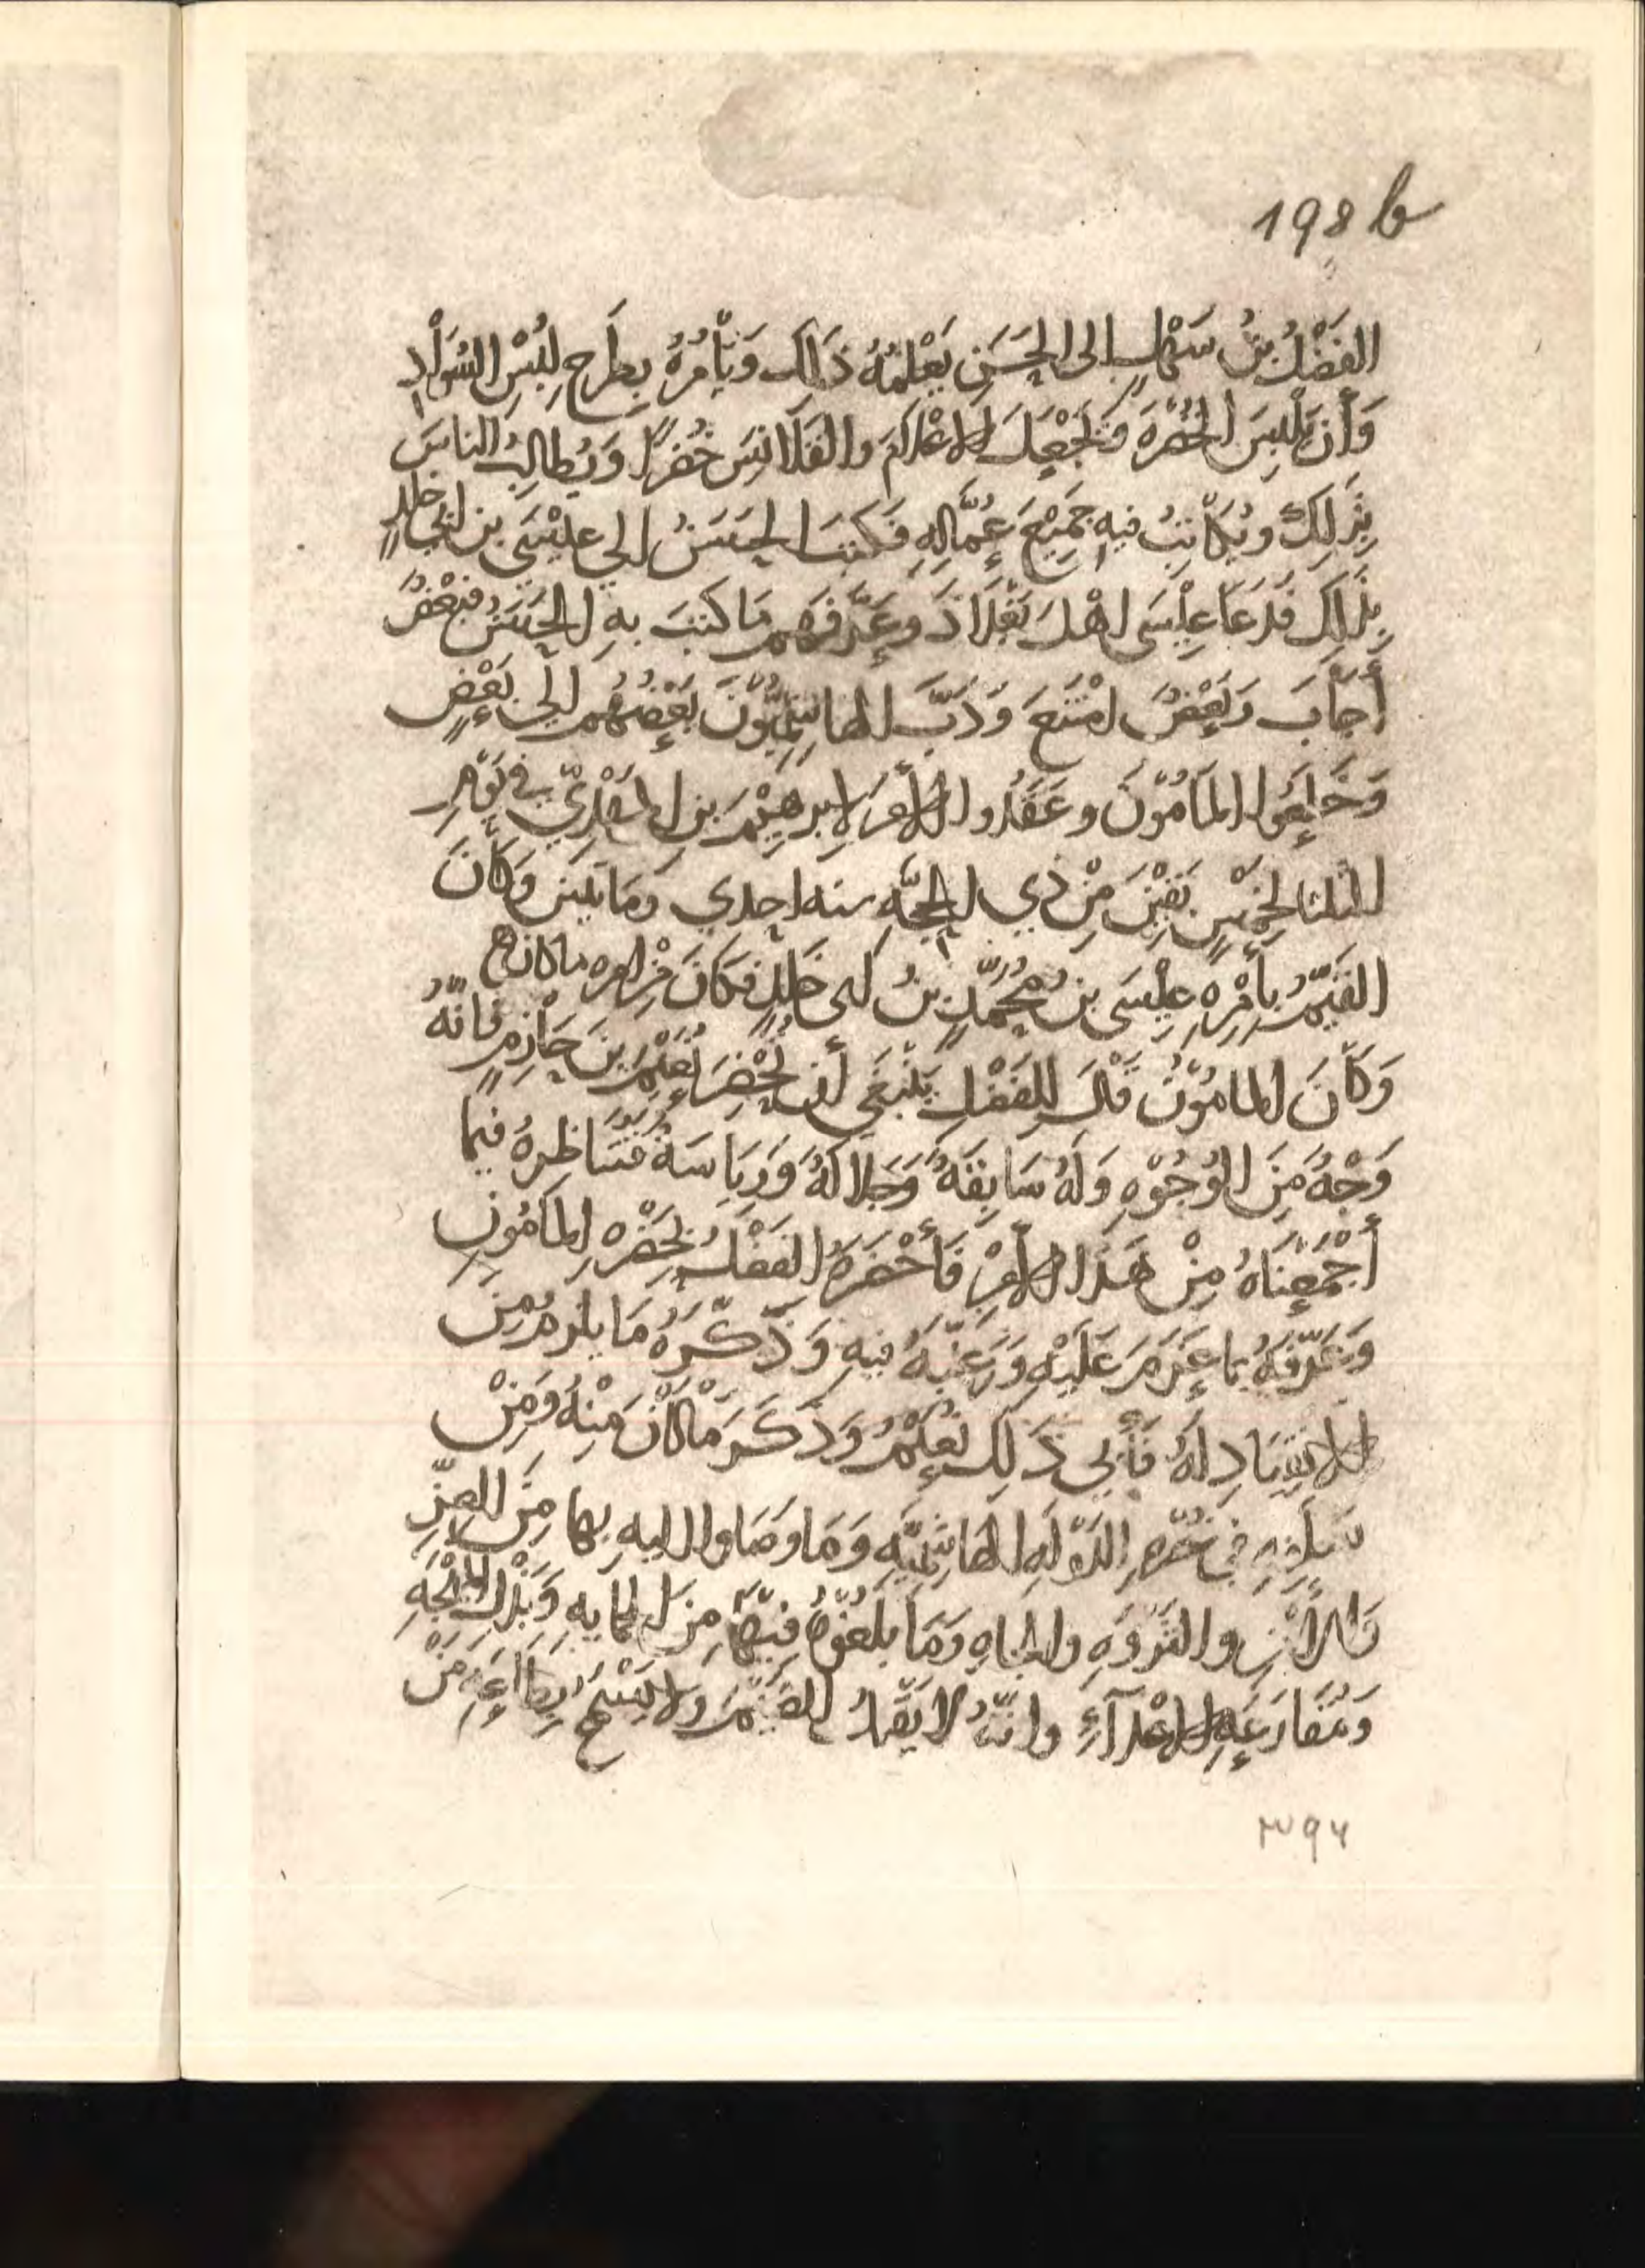 198 b
الفَضْلُ بنُ سَهْلٍ إلى الحَسَنِ يُعْلِمُهُ ذَلِكَ وَيَأْمُرُهُ بِطَرحِ لُبْسِ السَّوَادِ
وَأَن يَلْبَسَ الخُضْرَةَ وَيَجْعَلَ الاعْلَامَ والقَلَانِسَ خُضْرًا وَيُطَالِبُ الناسَ
بِذَلِكَ ويُكَاتِبُ فيه جَمِيْعَ عُمَّالِهِ فَكتبَ الحَسَنُ إلي عِيْسَى بن ابي خالدٍ
بِذَلِكَ فَدَعَا عِيْسَى اهْلَ بَغْدَاذَ وعَرَّفَهم مَا كتبَ بهِ الحَسَنُ فبَعْضٌ
أَجَابَ وَبَعْضٌ امْتَنَعَ وَدَبَّ الهاشِمِيُّوْنَ بَعْضُهُم إلي بَعْضٍ
وَخَلَعُوا المَامُوْنَ وعَقَدُوا الأمرَ لإبرهِيْمَ بن المَهْدِيّ في يَوْمِ
الثلثا لخَمْسٍ بَقِيْنَ مِنْ ذي الحِجَّهِ سنه احدي ومَايتَين وَكَانَ
القَيِّمُ بِأَمْرِهِ عِيْسَى بن مُحمَّدٍ بنُ ابى خَالِدٍ فَكَانَ مِنْ امره ما كان
وَكَانَ المامُوْنُ قَالَ لِلفَضْلِ يَنْبَغي أن تُحْضِرَ نُعَيْمَ بنَ حَازِمٍ فانّهُ
وَجْهٌ مِنَ الوُجُوْهِ وَلَهُ سَابِقَةٌ وَجَلالَهٌ وَرِيَاسَةٌ فَتُنَاظِرهُ فيما
أَجْمَعْنَاهُ مِنْ هَذَا الأَمْرِ فَأَحْضَرَهُ الفَضْلُ بحَضْرَهِ المَامُونِ
وَعَرَّفَهُ بما عَزَمَ عَلَيْهِ وَرَغَّبَهُ فيهِ وَذَكَّرَهُ مَا يلزمُهُ مِنَ
الانقِيَادِ لهُ فَأَبى ذَلِكَ نُعَيْمٌ وَذَكَرَ مَا كَانَ مِنْهُ وَمِنْ
سَلَفِهِ في نَصْرِ الدَّوْلَهِ الهَاشِمِيَّهِ وَمَا وصَلوا اليهِ بها مِنَ العِزِّ
والثَّرْوَهِ والجاهِ وَمَا بَلَغُوْهُ فِيْهَا مِنَ العنايهِ وَبَذْلِ المُهْجَهِ
وَمُقَارَعَهِ الاعْدَآءِ وانّهُ لا يَقْبَلُ الضَيْمَ ولا يَسْمَحُ بِطَاعَهِ مَنْ
٣٩٤